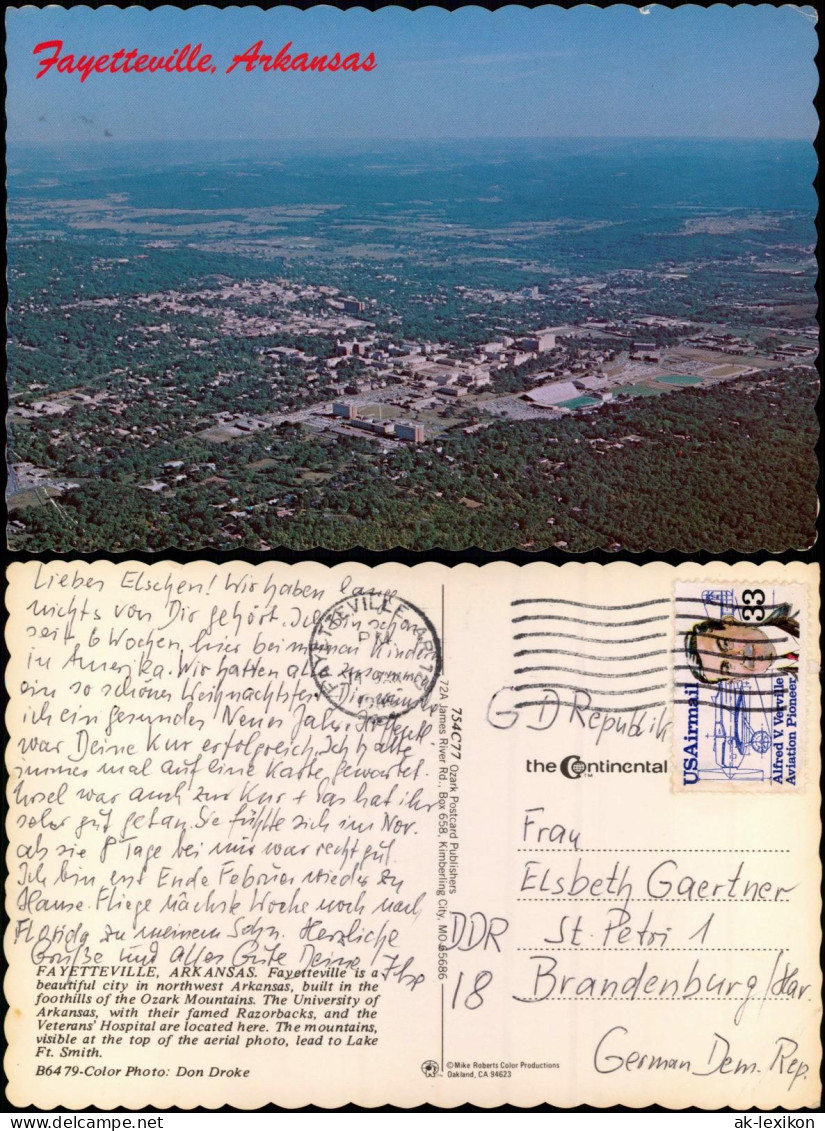 Fayetteville, Arkansas
Lieber Elschen! Wir haben lang
nichts von Dir gehört. Ich bin schon
seit 6 Wochen hier bei meinen Kindern
in Amerika. Wir hatten alle zusammen
ein so schönes Weihnachtsfest. Dir wünsche
ich ein gesundes Neues Jahr.
war Deine Kur erfolgreich. Ich hatte
immer mal auf eine Karte gewartet.
war auch zur Kur + das hat ihr
sehr gut getan. Sie fühlte sich im Nov.
als sie 8 Tage bei mir war recht gut.
Ich bin erst Ende Februar wieder zu
Hause. Fliege nächste Woche noch nach
Florida zu meinem Sohn. Herzliche
Grüße und alles Gute Deine Ilse
FAYETTEVILLE, ARKANSAS. Fayetteville is a
beautiful city in northwest Arkansas, built in the
foothills of the Ozark Mountains. The University of
Arkansas, with their famed Razorbacks, and the
Veterans' Hospital are located here. The mountains,
visible at the top of the aerial photo, lead to Lake
Ft. Smith.
B6479-Color Photo: Don Droke
FAYETTEVILLE
PM
754C77 Ozark Postcard Publishers
72A James River Rd., Box 658, Kimberling City, MO 65686
33
USAirmail
Alfred V. Verville
Aviation Pioneer
GD Republik
the Continental™
Frau
Elsbeth Gaertner
DDR St. Petri 1
18 Brandenburg/Hav.
German Dem. Rep.
©Mike Roberts Color Productions
Oakland, CA 94623
www.delcampe.net
ak-lexikon